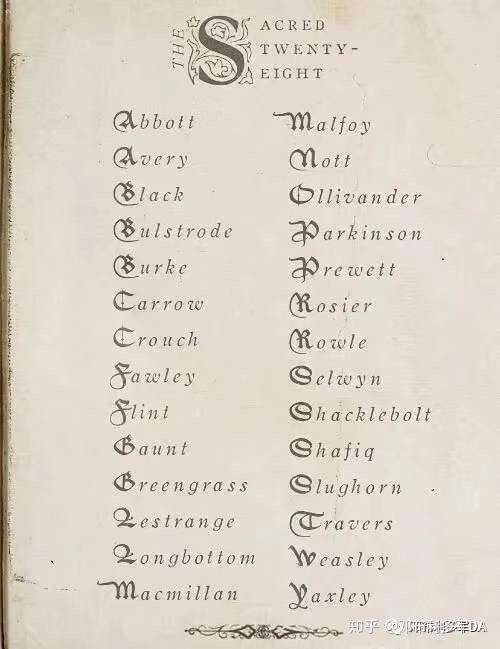 THE SACRED
TWENTY-
EIGHT
Abbott
Avery
Black
Bulstrode
Burke
Carrow
Crouch
Fawley
Flint
Gaunt
Greengrass
Lestrange
Longbottom
Macmillan
Malfoy
Nott
Ollivander
Parkinson
Prewett
Rosier
Rowle
Selwyn
Shacklebolt
Shafiq
Slughorn
Travers
Weasley
Yaxley
知乎